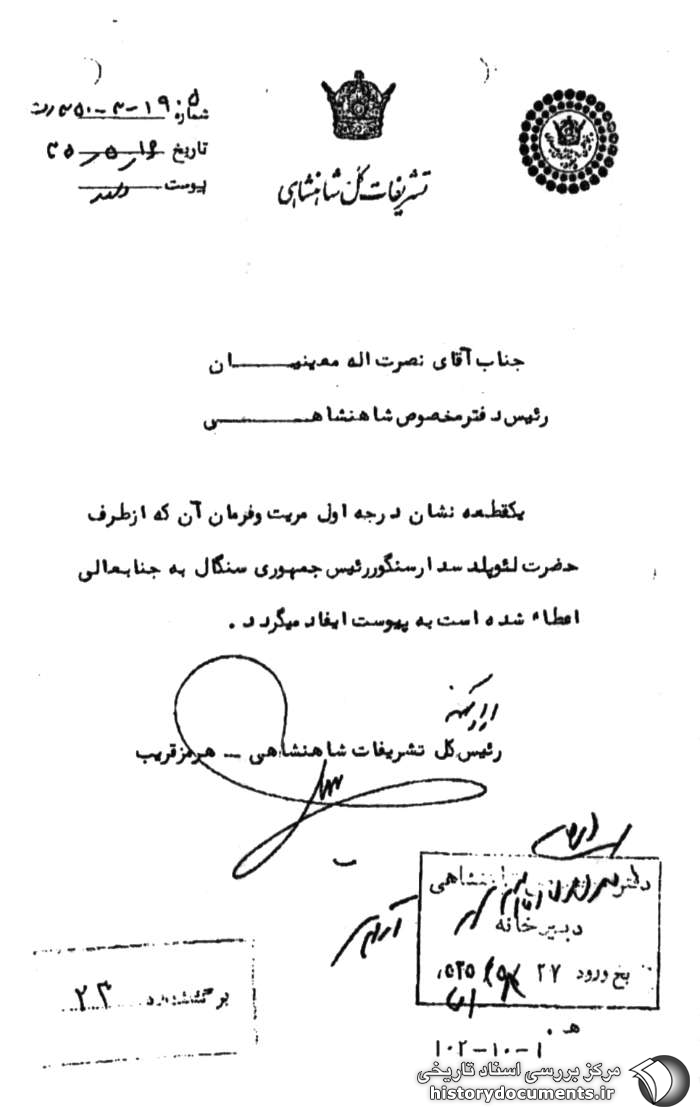 شماره
تاریخ
پیوست
تشریفات کل شاهنشاهی
جناب آقای نصرت اله معینیـــــان
رئیس دفتر مخصوص شاهنشاهـــــی
یکقطعه نشان درجه اول مریت وفرمان آن که ازطرف
حضرت لئوپلد سدارسنگوررئیس جمهوری سنگال به جنابعالی
اعطاء شده است به پیوست ایفاد میگردد .
رئیس کل تشریفات شاهنشاهی ـ هرمزقریب
دبیرخانه
ورود ۲۷
۲۳
ه .
۱۰۲-۱۰-۱
مرکز بررسی اسناد تاریخی
historydocuments.ir